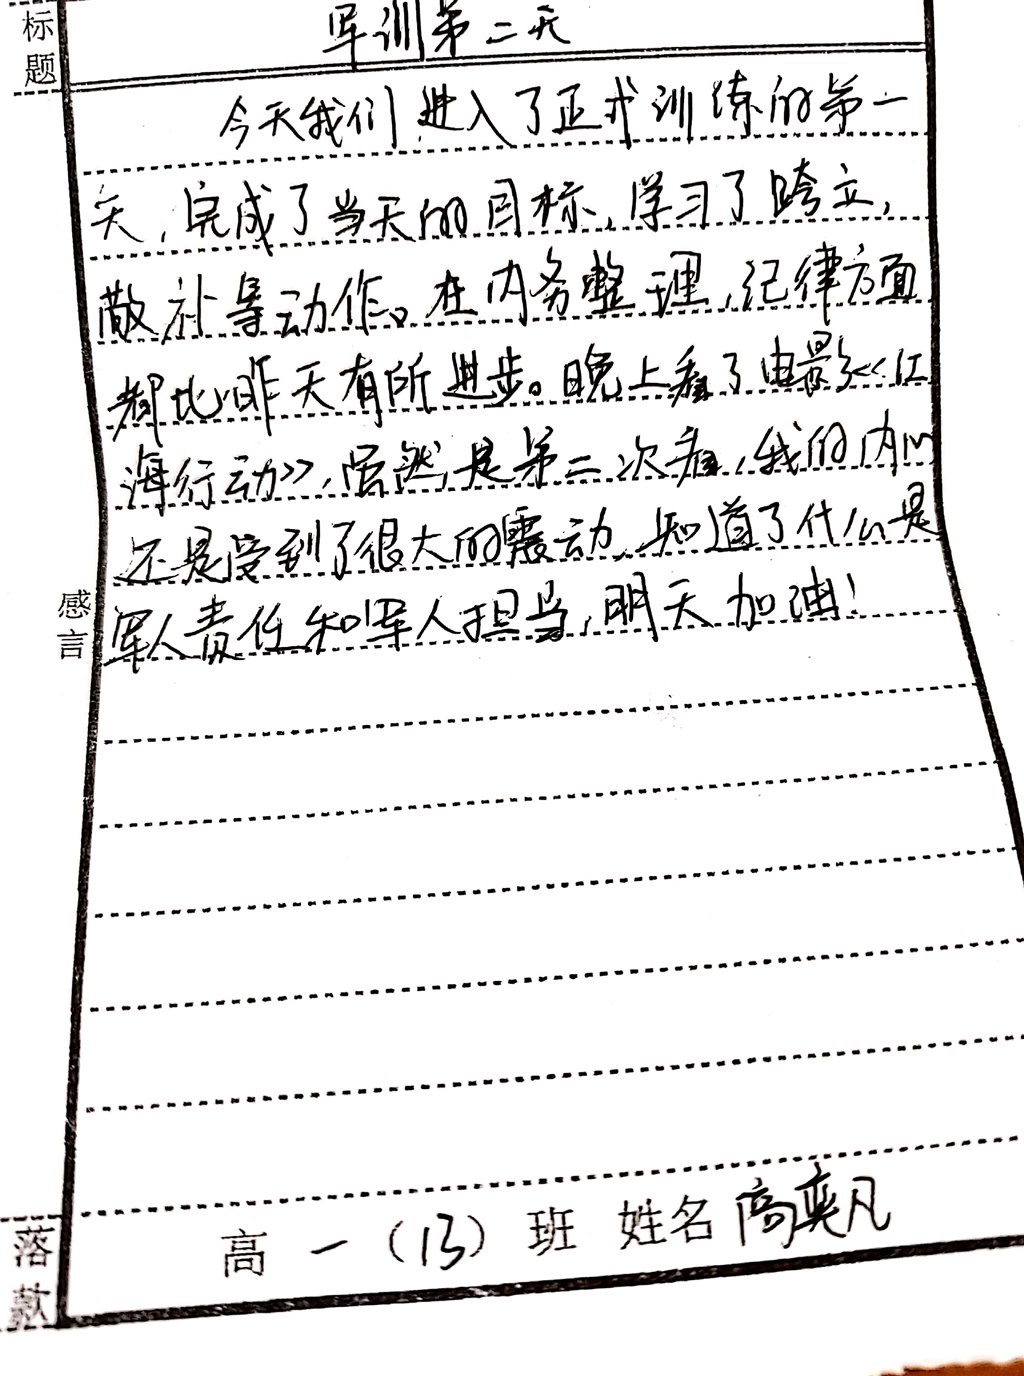 标题
军训第二天
今天我们进入了正式训练的第一
天,完成了当天的目标,学习了跨立,
敬礼等动作。在内务整理,纪律方面
都比昨天有所进步。晚上看了电影《红
海行动》,虽然是第二次看,我的内心
还是受到了很大的震动,知道了什么是
军人责任和军人担当,明天加油!
感言
落款
高一(13)班 姓名 高奕凡